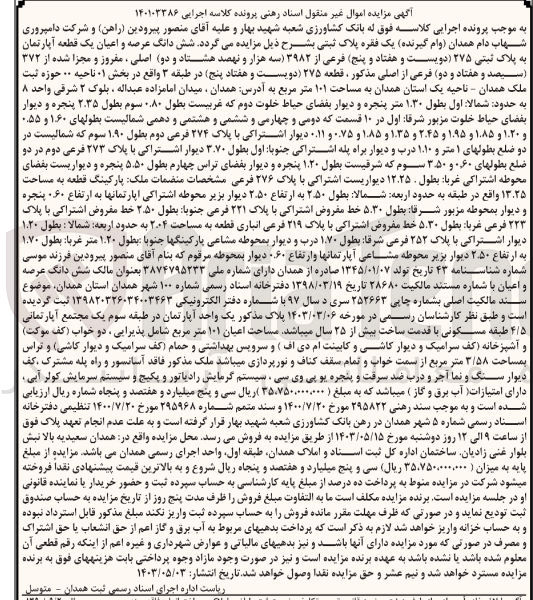 آگهی مزایده اموال غیر منقول اسناد رهنی پرونده کلاسه اجرایی ۱۴۰۱۰۳۳۸۶
به موجب پرونده اجرایی کلاســه فوق له بانک کشاورزی شعبه شهید بهار و علیه آقای منصور پیرودین (راهن) و شرکت دامپروری
شــهاب دام همدان (وام گیرنده) یک فقره پلاک ثبتی بشــرح ذیل مزایده می گردد. شش دانگ عرصه و اعیان یک قطعه آپارتمان
به پلاک ثبتی ۲۷۵ (دویســت و هفتاد و پنج) فرعی از ۳۹۸۲ (سه هزار و نهصد هشتــاد و دو) اصلی، مفروز و مجزا شده از ۳۷۲
(سیــصد و هفتاد و دو) فرعی از اصلی مذکور، قطعه ۲۷۵ (دویســت و هفتاد پنج) در طبقه ۳ واقع در بخش ۰۱ ناحیه ۰۰ حوزه ثبت
ملک همدان - ناحیه یک استان همدان به مساحت ۱۰۱ متر مربع به آدرس: همدان، میدان امامزاده عبداله، بلوک ۲ شرقی واحد ۸
به حدود: شمالا: اول بطول ۱.۳۰ متر پنجره و دیوار بفضای حیاط خلوت دوم که غربیست بطول ۰.۸۰ سوم بطول ۲.۳۵ پنجره و دیوار
بفضای حیاط خلوت مزبور شرقا: اول در ۱۰ قسمت که دومی و چهارمی و ششمی و هشتمی و دهمی شمالیست بطولهای ۱.۶۰ و ۰.۵۵
و ۱.۲۰ و ۱.۸۵ و ۱.۹۵ و ۲.۴۵ و ۱.۳۵ و ۱.۸۵ و ۰.۷۵ و ۰.۱۱ دیوار اشتراکی با پلاک ۲۷۴ فرعی دوم بطول ۱.۹۰ سوم که شمالیست در
دو ضلع بطولهای ۱ متر و ۱.۱۰ درب و دیوار براه پله اشــتراکی جنوبا: اول بطول ۳.۷۰ دیوار اشتراکی با پلاک ۲۷۳ فرعی دوم در دو
ضلع بطولهای ۰.۶۰ و ۳.۵۰ ســوم که شرقیست بطول ۱.۲۰ پنجره و دیوار بفضای تراس چهارم بطول ۵.۵۰ پنجره و دیواریست بفضای
محوطه اشتراکی غربا: بطول . ۱۲.۲۵ دیواریست اشتراکی با پلاک ۲۷۶ فرعی مشخصات منضمات ملک: پارکینگ قطعه به مساحت
۱۳.۲۵ واقع در طبقه به حدود اربعه: شــمالا: بطول ۲.۵۰ به ارتفاع ۲.۵۰ دیوار بزیر محوطه اشتراکی آپارتمانها به ارتفاع ۰.۶۰ پنجره
و دیوار بمحوطه مزبور شــرقا: بطول ۵.۳۰ خط مفروض اشتراکی با پلاک ۲۲۱ فرعی جنوبا: بطول ۲.۵۰ خط مفروض اشتراکی با پلاک
۲۲۳ فرعی غربا: بطول ۵.۳۰ خط مفروض اشتراکی با پلاک ۲۱۹ فرعی انباری قطعه به مساحت ۲.۰۴ به حدود اربعه: شمالا: بطول ۱.۲۰
دیوار اشــتراکی با پلاک ۲۵۲ فرعی شرقا: بطول ۱.۷۰ درب و دیوار بمحوطه مشاعی پارکینگها جنوبا: بطول ۱.۲۰ متر غربا: بطول ۱.۷۰
به ارتفاع ۲.۵۰ دیوار بزیر محوطه مشــاعی آپارتمانها وارتفاع ۰.۶۰ دیوار بمحوطه مرقوم که بنام آقای منصور پیرودین فرزند موسی
شماره شناسنامه ۴۳ تاریخ تولد ۱۳۴۵/۰۱/۰۷ صادره از همدان دارای شماره ملی ۳۸۷۴۷۹۵۲۳۳ بعنوان مالک شش دانگ عرصه
و اعیان با شماره مستند مالکیت ۲۸۶۸۰ تاریخ ۱۳۹۸/۰۳/۱۹ دفترخانه اسناد رسمی شماره ۱۰۰ شهر همدان استان همدان، موضوع
سند مالکیت اصلی بشماره چاپی ۲۵۳۶۶۳ سری د سال ۹۷ با شماره دفتر الکترونیکی ۱۳۹۸۲۰۳۲۶۰۳۴۰۰۳۴۶۳ ثبت گردیده
است و طبق نظر کارشناسان رســمی در مورخه ۱۴۰۳/۰۳/۰۶ پلاک مذکور یک واحد آپارتمان در طبقه سوم یک مجتمع آپارتمانی
۴/۵ طبقه مســکونی با قدمت ساخت بیش از ۲۵ سال میباشد. مساحت اعیان ۱۰۱ متر مربع شامل پذیرایی، دو خواب (کف موکت)
و آشپزخانه (کف سرامیک و دیوار کاشــی و کابینت ام دی اف) و سرویس بهداشتی و حمام (کف سرامیک و دیوار کاشی) و تراس
بمساحت ۳/۵۸ متر مربع از سمت خواب و تمام سقف کناف و نورپردازی میباشد ملک مذکور فاقد آسانسور و راه پله مشترک، کف
دیوار ســنگ، نما آجر و درب ضد سرقت و پنجره یو پی وی سی، سیستم گرمایش رادیاتور و پکیج و سیستم سرمایش کولر آبی،
دارای امتیازات( آب برق و گاز) میباشد که به مبلغ ( ۳۵.۷۵۰.۰۰۰.۰۰۰) ریال سی و پنج میلیارد و هفتصد و پنجاه شماره ریال ارزیابی
شــده است و به موجب سند رهنی ۲۹۵۸۲۲ مورخ ۱۴۰۰/۷/۲۰ و سند متمم شــماره ۲۹۵۹۶۸ مورخ ۱۴۰۰/۷/۲۰ تنظیمی دفترخانه
اسناد رسمی شماره ۵ شهر همدان در رهن بانک کشاورزی شعبه شهید بهار قرار گرفته است و به علت عدم انجام تعهد پلاک فوق
از ساعت ۹ الی ۱۲ روز دوشنبه مورخ ۱۴۰۳/۰۵/۱۵ از طریق مزایده به فروش می رسد. محل مزایده واقع در: همدان سعیدیه بالا نبش
بلوار غنی زادیان. ساختمان اداره کل ثبت اســناد و املاک همدان، طبقه اول، واحد اجرای رسمی همدان می باشد. مزایده از مبلغ
پایه به میزان (۳۵.۷۵۰.۰۰۰.۰۰۰ ریال) سی و پنج میلیارد و هفتصد و پنجاه ریال شروع و به بالاترین قیمت پیشنهادی نقدا فروخته
میشود شرکت در مزایده منوط به پرداخت ده درصد از مبلغ پایه کارشناسی به حساب سپرده ثبت و حضور خریدار یا نماینده قانونی
او در جلسه مزایده است. برنده مزایده مکلف است ما به التفاوت مبلغ فروش را ظرف مدت پنج روز از تاریخ مزایده به حساب صندوق
ثبت تودیع نماید و در صورتی که ظرف مهلت مقرر مانده فروش را به حساب سپرده ثبت واریز نکند مبلغ مذکور قابل استرداد نبوده
و به حساب خزانه واریز خواهد شد لازم به ذکر است که پرداخت بدهیهای مربوط به آب برق و گاز اعم از حق انشعاب یا حق اشتراک
و مصرف در صورتی که مورد مزایده دارای آنها باشــند و نیز بدهیهای مالیاتی و عوارض شهرداری و غیره اعم از اینکه رقم قطعی آن
معلوم شده باشد یا نشده باشد به عهده برنده مزایده است و نیز در صورت وجود مازاد وجوه پرداختی بابت هزینههای فوق به برنده
مزایده مسترد خواهد شد و نیم عشر و حق مزایده نقدا وصول خواهد شد.تاریخ انتشار: ۱۴۰۳/۰۵/۰۳
ریاست اداره اجرای اسناد رسمی ثبت همدان - متوسل